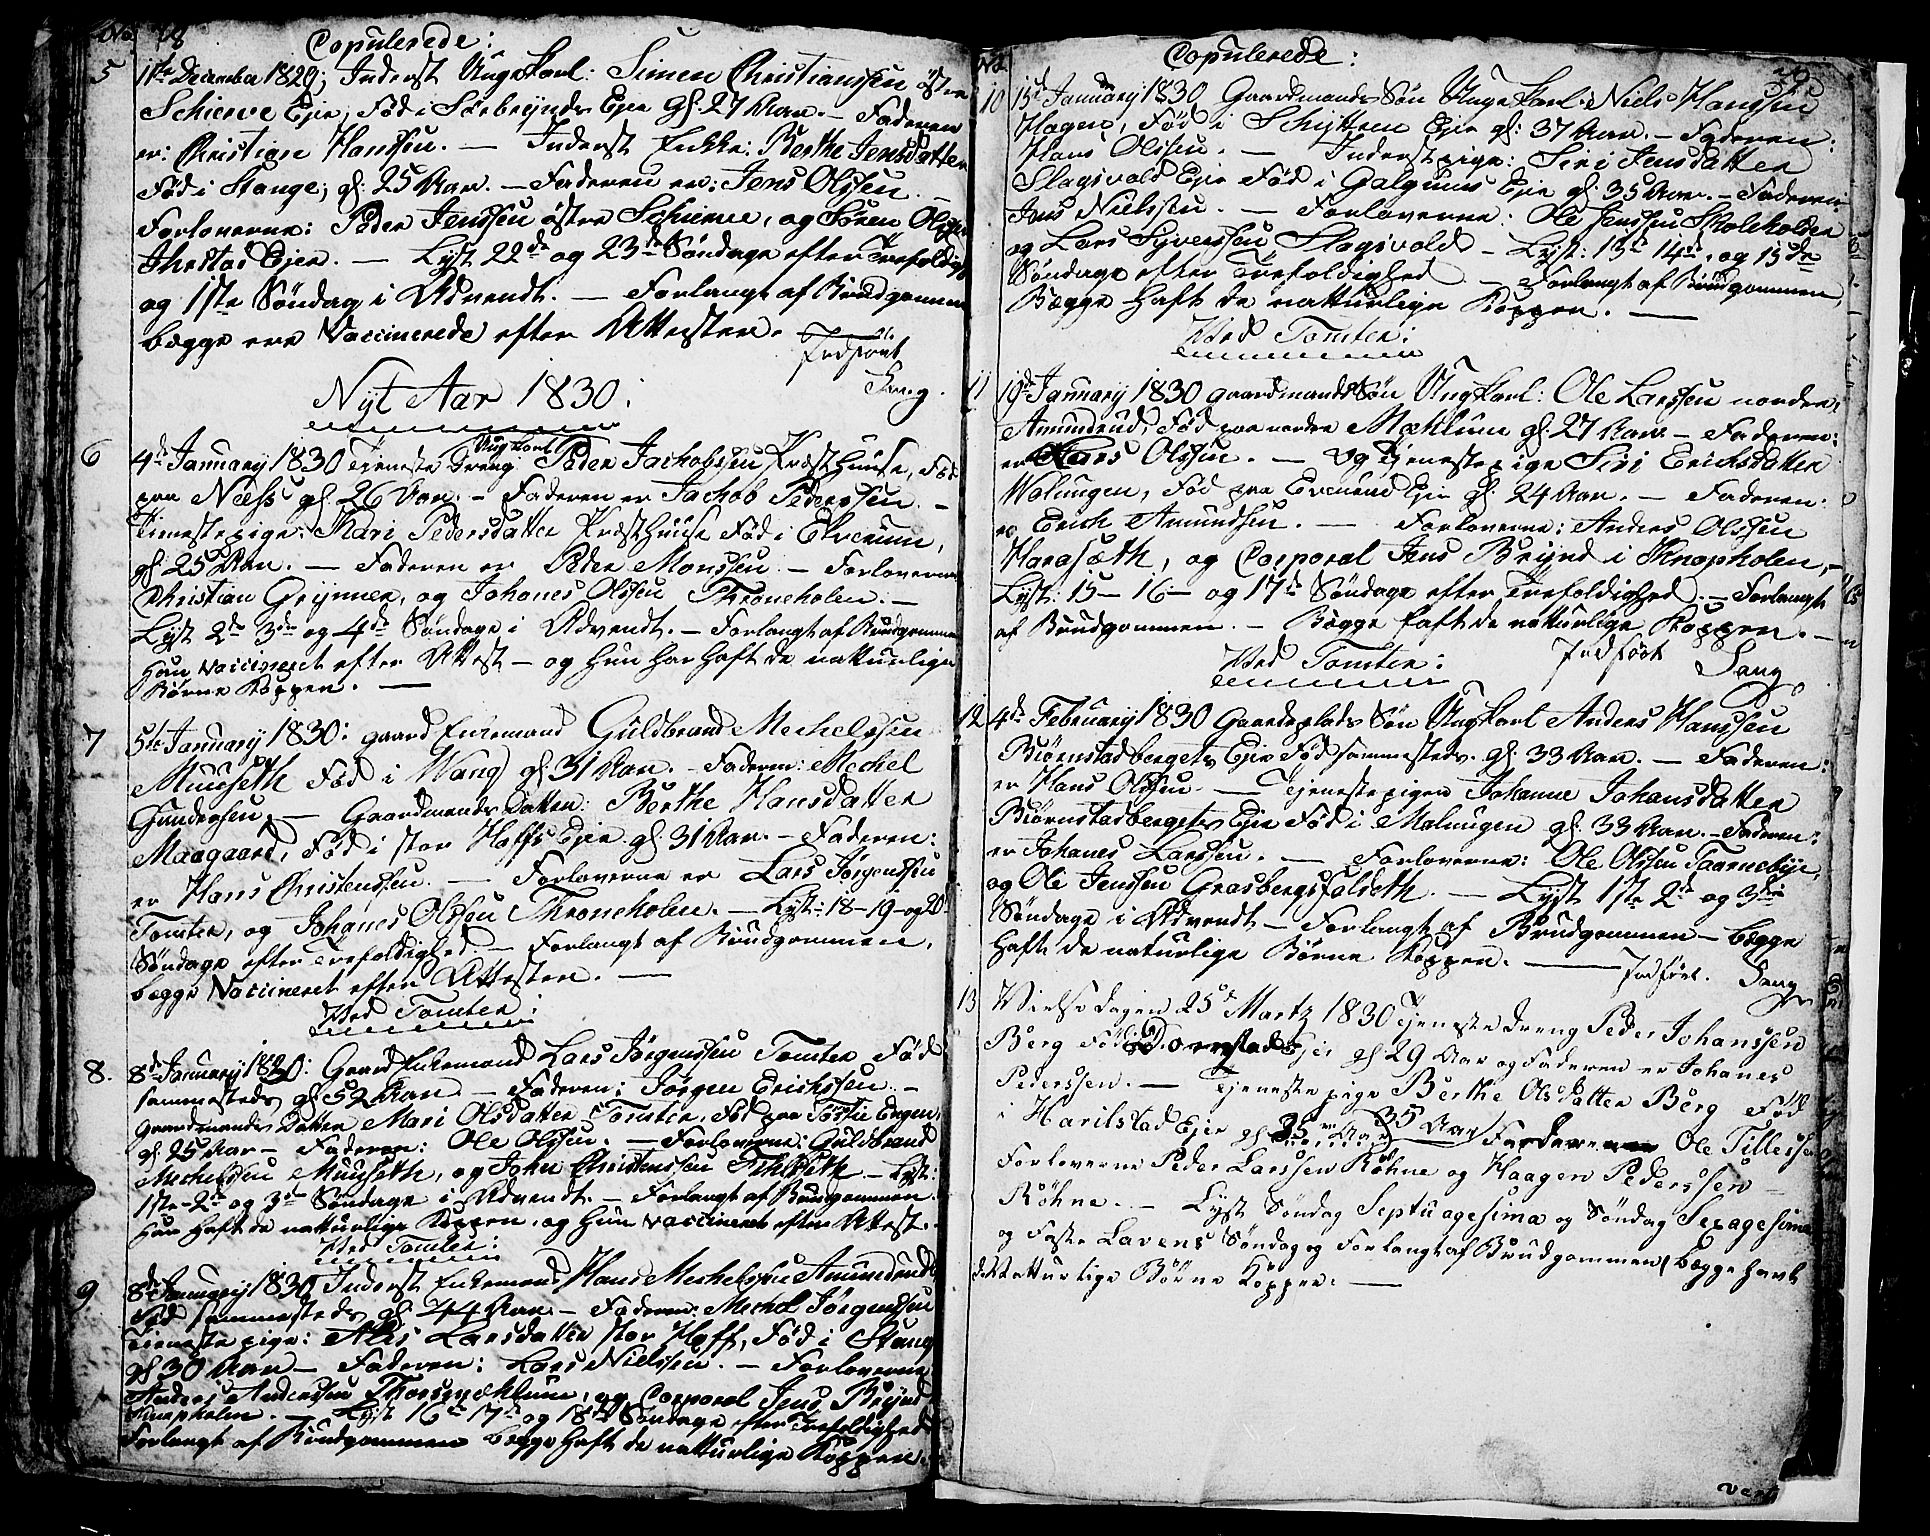 No 48
Copulerede:
5 11te December 1829; Inderst Ungekarl: Simen Christianssen östre
Schierve Eje, Fød i Sörbrynds Eje gl. 27 Aar. — Faderen
er: Christian Hanssen. — Inderst Enkke: Berthe Jensdatter
Fød i Stange; gl. 25 Aar. — Faderen er: Jens Olssen. —
Forloverne: Peder Jenssen östre Schierve, og Sören Olssen
Ihrstad Ejer. — Lyst 22de og 23de Söndage efter Trefoldigh:
og 1ste Söndag i Advendt. — Forlangt af Brudgommen
begge ere Vaccinerede efter Attester.
Indført
Sang.
Nyt Aar 1830:
Ungkarl
6 4de January 1830 Tjeneste Dreng Peder Jachobssen Præsthuuse, Fød
paa Næss gl. 26 Aar. — Faderen er Jachob Pederssen. —
Tienestepige: Kari Pedersdatter Præsthuuse Fød i Elverum,
gl. 25 Aar. — Faderen er Peder Monssen. — Forloverne
Christian Grynner, og Johanes Olssen Throneholen. —
Lyst 2de 3de og 4de Søndage i Advendt. — Forlangt af Brudgommen
Han vaccineret efter Attest — og Hun har haft de natturlige
Børne Kopper. —
7 5te January 1830: gaard Enkemand Guldbrand Mechelssen
Muuseth Fød i Wang gl. 31 Aar. — Faderen: Mechel
Gunderssen, — Gaardmands Datter: Berthe Hansdatter
Maagaard, Fød i stor Hoffs Eje gl. 31 Aar. — Faderen:
er Hans Christenssen. — Forloverne er Lars Jörgenssen
Tomter, og Johanes Olssen Throneholen. — Lyst: 18 — 19 — og 20
Søndage efter Trefoldighed — Forlangt af Brudgommen,
begge Vaccineret efter Attester. —
Wed Tomter:
8. 8de January 1830: Gaard Enkemand Lars Jörgenssen Tomter Fød
sammesteds gl. 52 Aar. — Faderen: Jörgen Erichssen. —
Gaardmands Datter Mari Olsdatter Tomter, Fød paa
gl. 25 Aar — Faderen: Ole Olssen. — Forloverne: Guldbrand
Mechelssen Muuseth, og John Christenssen — Lyst:
1ste — 2de og 3de Søndage i Advendt. — Forlangt af Brudgommen.
Han haft de natturlige Kopper. og Hun vaccineret efter Attest. —
Wed Tomter:
9. 8de January 1830 Inderst Enkemand Hans Mechelssen Amundrud
Fød sammesteds gl. 44 Aar. — Faderen: Mechel Jörgenssen
Tienestepige: Alis Larsdatter stor Hoff, Fød i Stange
gl. 30 Aar — Faderen: Lars Nielssen. — Forloverne
Anders Anderssen Thorsmæklum, og Corporal Jens Brynd
Knapholen. — Lyst 16de 17de og 18de Søndage efter Trefoldighed
Forlangt af Brudgommen begge haft de natturlige Kopper.
No
Copulerede:
10 15de January 1830 Gaardmands Søn Unge Karl: Niels Hanssen
Hagen, Fød i Schyttren Eje gl: 37 Aar. — Faderen:
Hans Olssen. — Inderst pige: Siri Jensdatter
Slagsvold Eje Fød i Galguus Eje gl. 35 Aar. — Faderen:
Jens Nielssen. — Forloverne: Ole Jenssen Skoleholder
og Lars Syverssen Slagsvold — Lyst: 13de 14de og 15de
Søndage efter Trefoldighed — Forlangt af Brudgommen,
Begge haft de natturlige Kopper. —
Wed Tomter:
11 19de January 1830 gaardmands Søn Ungkarl: Ole Larssen nordre
Amundrud, Fød paa nordre Mæhlum gl. 27 Aar — Faderen:
er Lars Olssen. — Og Tjenestepige Siri Erichsdatter
Walungen, Fød paa Evenrud Eje gl. 24 Aar. — Faderen:
er Erich Amundssen. — Forloverne: Anders Olssen
Harasæth, og Corporal Jens Brynd i Knapholen, —
Lyst: 15 — 16 — og 17de Søndage efter Trefoldighed. — Forlangt
af Brudgommen. — Begge haft de natturlige Kopper. —
Wed Tomter: Indført Sang
12 4de February 1830 Gaardeplads Søn Ungkarl Anders Hanssen
Biørnstadbergets Eje Fød sammesteds. gl. 33 Aar. — Faderen:
er Hans Olssen. — Tjenestepigen Johanne Johansdatter
Biørnstadbergets Eje Fød i Malungen gl. 33 Aar. — Faderen:
er Johanes Larssen. — Forloverne: Ole Olssen Taarnebye,
og Ole Jenssen Grasbergsfaldeth. — Lyst 1ste 2de og 3die
Söndage i Advendt — Forlangt af Brudgommen — begge
haft de naturlige Børne Kopper. — Indført. Sang
13 Vielse dagen 25de Martz 1830 Tjeneste dreng Peder Johanssen
Berg Fød i Dornstads Eje gl 29 Aar og Faderen er Johanes
Pederssen. — Tjeneste pige Berthe Ols Datter Berg Fød
i Harilstad Eje gl 35 Aar Faderen Ole Tillessen
Forloverne Peder Larssen Röhne og Haagen Pederssen —
Röhne. — Lyst Søndag Septuagesima og Søndag Sexagesima
og Faste Lavens Søndag og Forlangt af Brudgommen begge havt
de Natturlige Börne Kopper. —